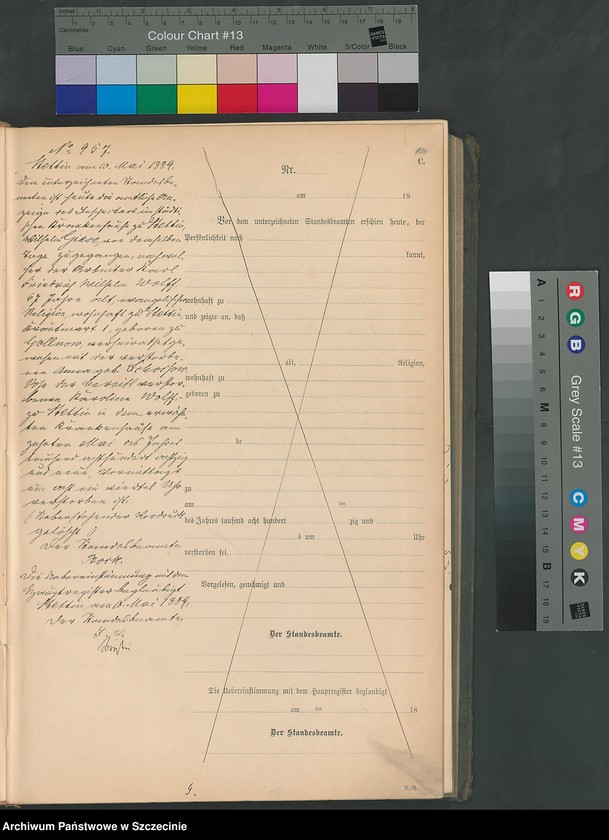 Inches
Centimetres
Colour Chart #13
Blue Cyan Green Yellow Red Magenta White 3/Color Black
No 957.
Stettin am 10. Mai 1889.
Dem unterzeichneten Standesbe-
amten ist heute die amtliche An-
zeige des Inspectors im städti-
schen Krankenhause zu Stettin,
Wilhelm von demselben
Tage zugegangen, nach wel-
cher der Arbeiter Karl
Friedrich Wilhelm Wolff,
67 Jahre alt, evangelischer
Religion, wohnhaft zu Stettin,
1, geboren zu
Gollnow, verheirathet ge-
wesen mit der verstorbe-
nen Anna geb.
Sohn der bereits verstor-
benen Karoline Wolff,
zu Stettin in dem erwähn-
ten Krankenhause am
zehnten Mai des Jahres
tausend achthundert achtzig
und neun, Vormittags
um acht ein viertel Uhr
verstorben ist.
(Nebenstehender Vordruck
gelöscht.)
Der Standesbeamte
Die Uebereinstimmung mit dem
Hauptregister beglaubigt
Stettin am 10. Mai 1889.
Der Standesbeamte
C.
Nr.
am 18
Vor dem unterzeichneten Standesbeamten erschien heute, der
Persönlichkeit nach
kannt,
wohnhaft zu
und zeigte an, daß
alt, Religion,
wohnhaft zu
geboren zu
de
zu
am ten
des Jahres tausend acht hundert zig und
s um Uhr
verstorben sei.
Vorgelesen, genehmigt und
Der Standesbeamte.
Die Uebereinstimmung mit dem Hauptregister beglaubigt
am ten 18
Der Standesbeamte.
R G B
Grey Scale #13
C M Y K
A 1 2 3 4 5 6 M 8 9 10 11 12 13 14 15 B 17 18 19
Archiwum Państwowe w Szczecinie